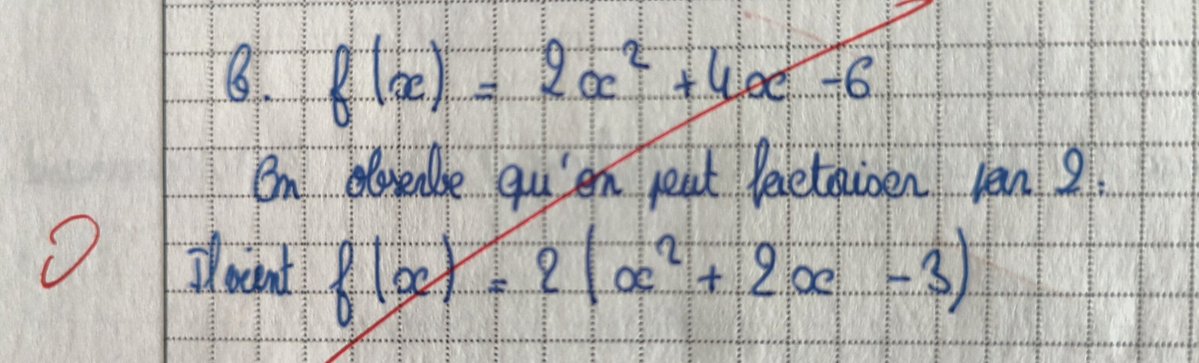 b. f(x) = 2x² + 4x - 6
On observe qu'on peut factoriser par 2.
Il vient f(x) = 2(x² + 2x - 3)
0